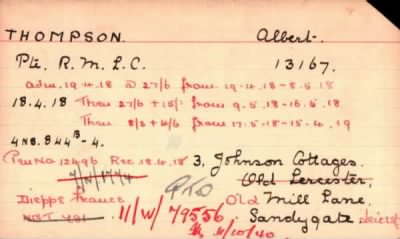 THOMPSON. Albert.
Pte. R. M. L. C. 13167.
adm. 19.4.18 @ 27/6 from 19.4.18 - 8.5.18
18.4.18 Then 27/6 + 15/- from 9.5.18 - 16.5.18
Then 8/3 + 4/6 from 17.5.18 - 15.4.19
4 NB. 844B - 4.
Pen No 12496 Rec. 18.4.18 3, Johnson Cottages.
7/N/1774 PTO Old Leicester,
Dieppe France Old Mill Lane,
NOT 11/W/79556 Sandygate
11/10/40